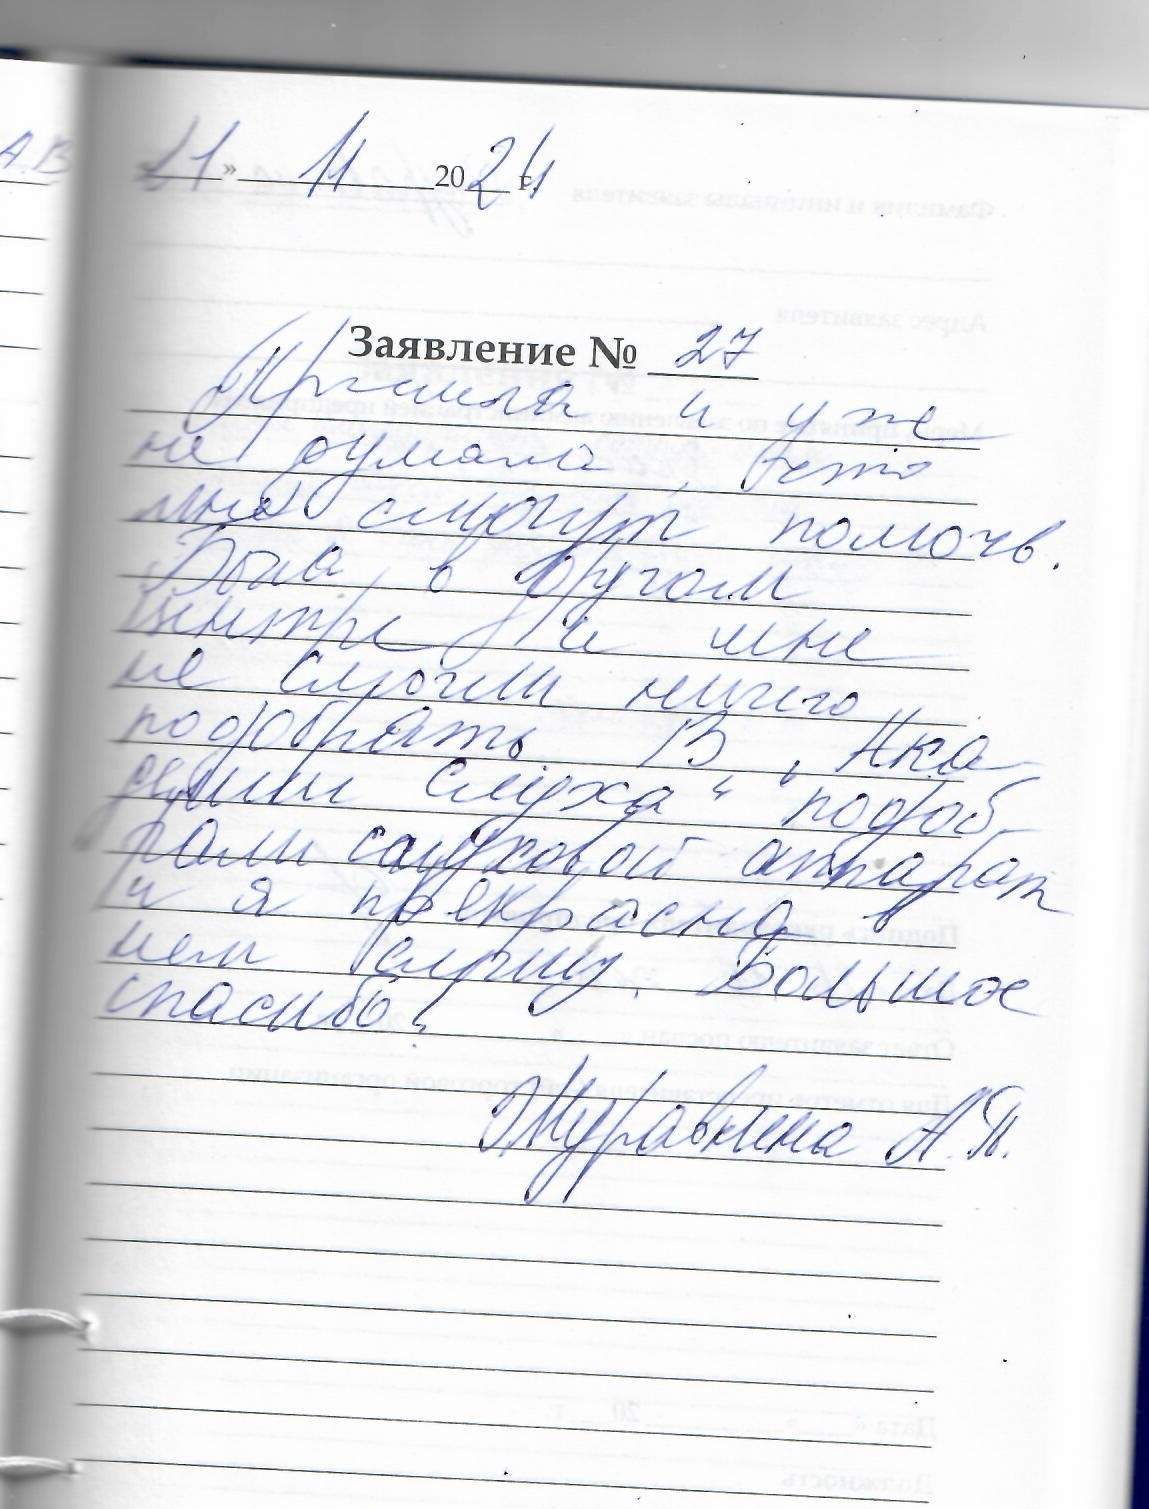 21» 11 2024 г.
Заявление № 27
Пришла и уже
не думала, что
мне смогут помочь.
Была в другом
центре и мне
не смогли ничего
подобрать В „Ака
демии слуха“ подоб
рали слуховой аппарат
и я прекрасно в
нем слышу. Большое
спасибо!
Журавкина А.П.